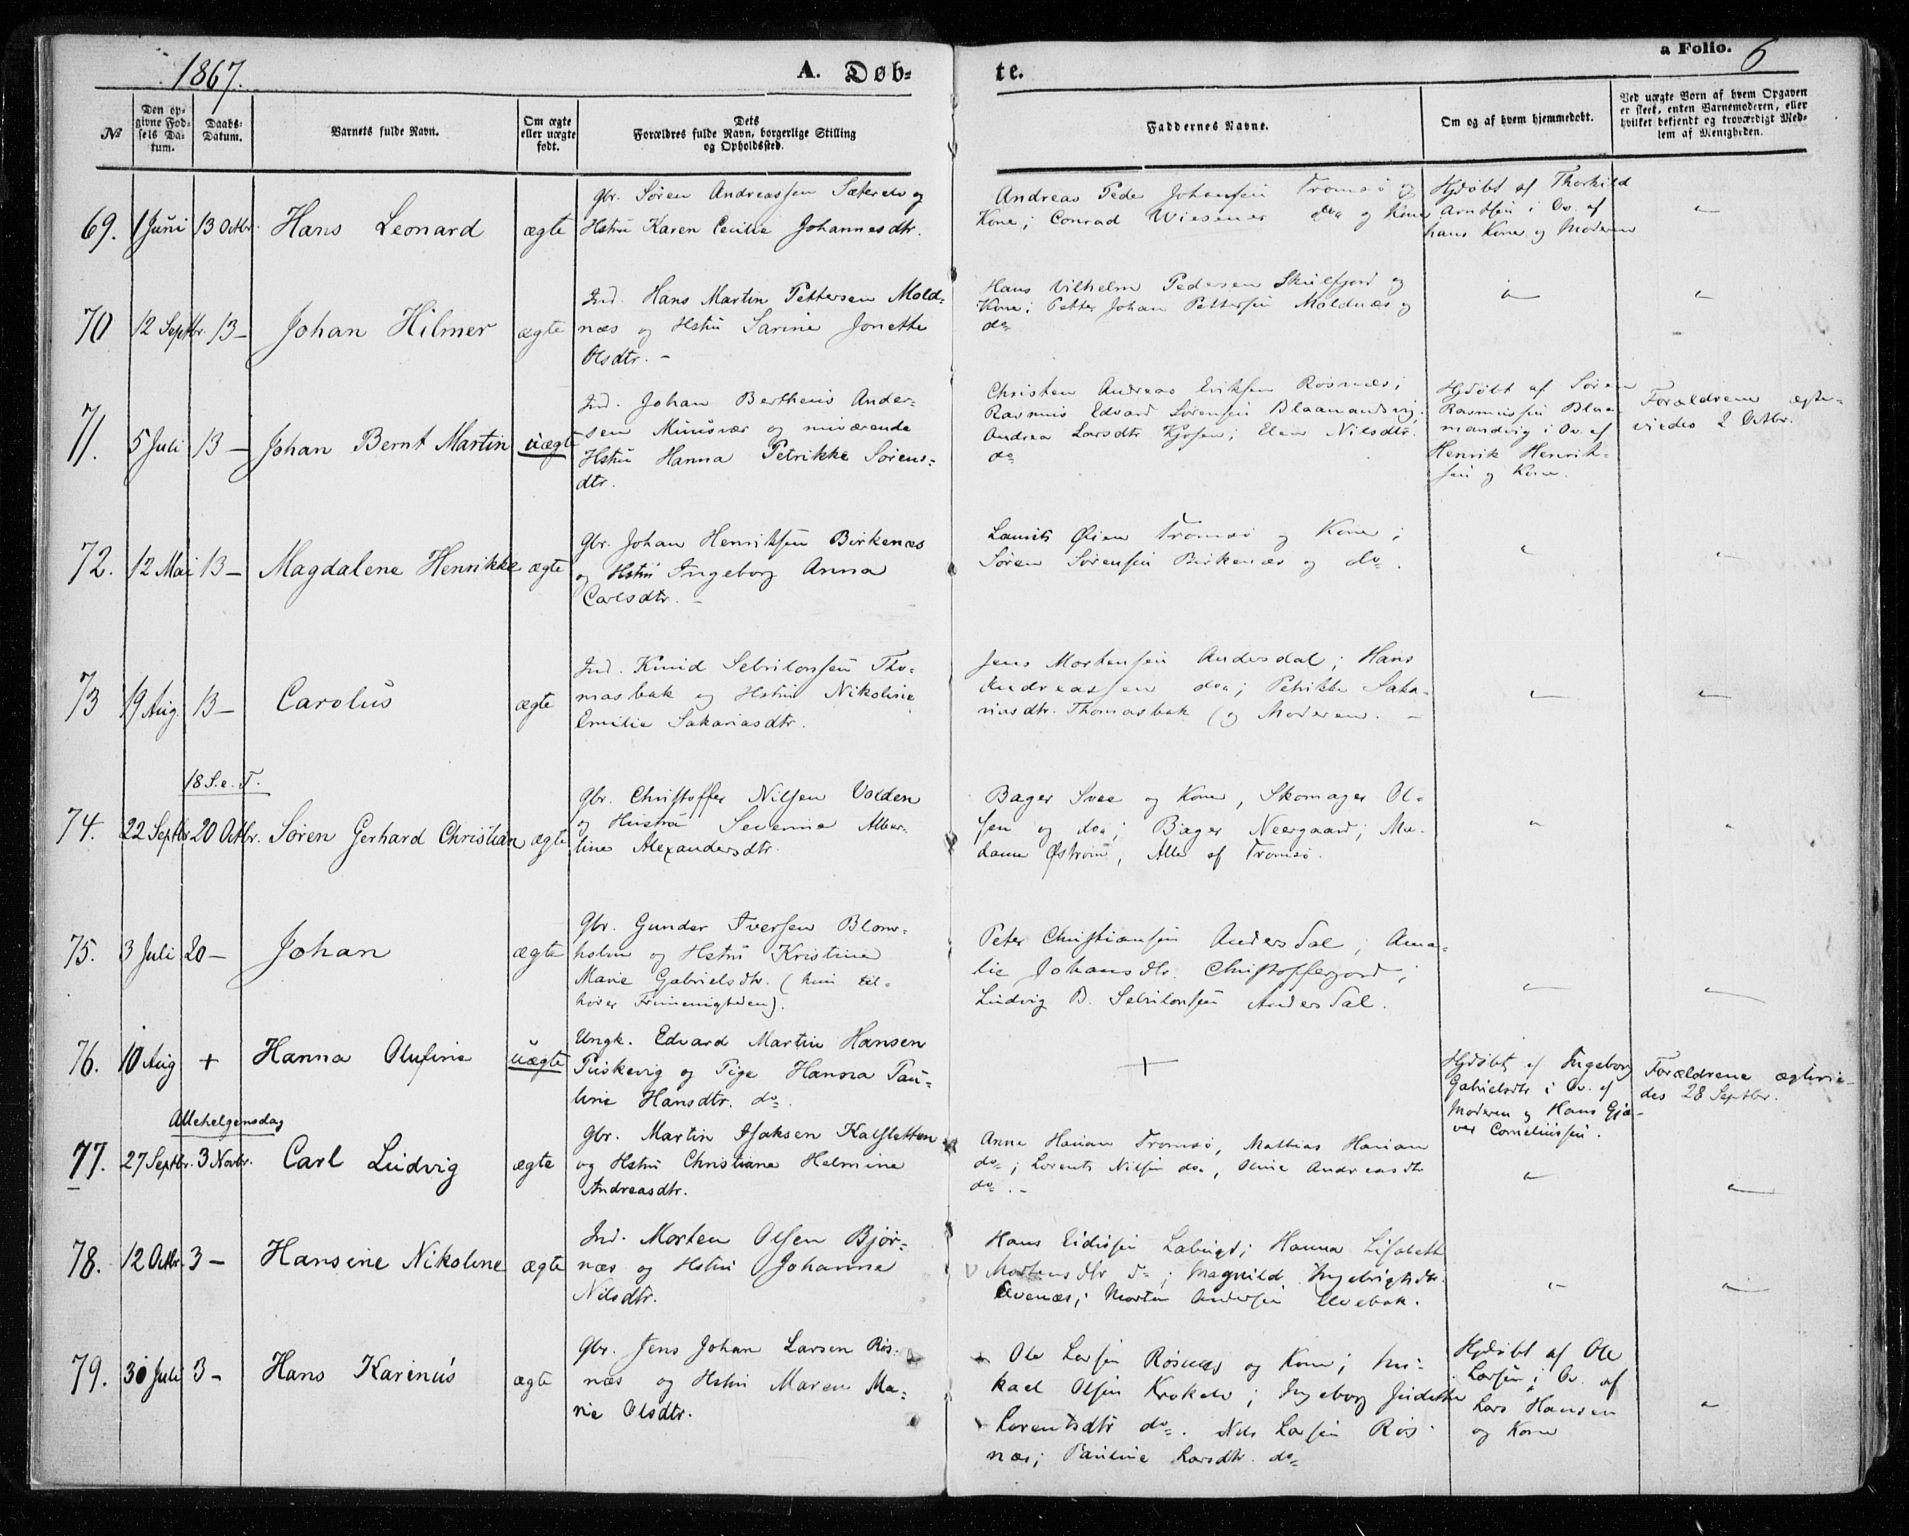 1867.
A. Døb-
te.
a Folio. 6
№
Den op-
givne Fød-
sels Da-
tum.
Daabs-
Datum.
Barnets fulde Navn.
Om ægte
eller uægte
født.
Dets
Forældres fulde Navn, borgerlige Stilling
og Opholdssted.
Faddernes Navne.
Om og af hvem hjemmedøbt.
Ved uægte Børn af hvem Opgaven
er skeet, enten Barnemoderen, eller
hvilket bekjendt og troværdigt Med-
lem af Menigheden.
69. 1 Juni 13 Octbr. Hans Leonard ægte
Gbr. Søren Andreassen Sæterelv og
Hstru Karen Cecilie Johannesdtr.
Andreas Peder Johansen Tromsø og
Kone; Conrad Wiesener do og Kone
Hjdøbt af Thorkild
Arntsen i Ov. af
hans Kone og Moderen
70 12 Septbr. 13 - Johan Hilmer ægte
Ind. Hans Martin Pettersen Mold-
næs og Hstru Sarine Jonette
Olsdtr. -
Hans Vilhelm Pedersen Skulfjord og
Kone; Petter Johan Pettersen Moldnæs og
do
71. 5 Juli 13 - Johan Bernt Martin uægte
Ind. Johan Bertheus Ander-
sen Muusvær og nuværende
Hstru Hanna Petrikke Sørens-
dtr.
Christen Andreas Eriksen Røsnæs;
Rasmus Edvard Sørensen Blaamandsvig;
Andrea Larsdtr Kjosen; Elen Nilsdtr.
do
Hjdøbt af Søren
Rasmussen Blaa-
mandvig i Ov. af
Henrik Henrik-
sen og Kone.
Forældrene ægte-
viedes 2 Octbr.
72. 12 Mai 13 - Magdalene Henrikke ægte
Gbr. Johan Henriksen Birkenæs
og Hstru Ingeborg Anna
Carlsdtr. -
Laurits Øien Tromsø og Kone;
Søren Sørensen Birkenæs og do.
73 19 Aug. 13 - Carolus ægte
Ind. Knud Selvilonsen Tho-
masbak og Hstru Nikoline
Emilie Sakariasdtr.
Jens Mortensen Andersdal; Hans
Andreassen do; Petrikke Saka-
riasdtr. Thomasbak (og Moderen. -
18 S. e. T.
74. 22 Septbr. 20 Octbr. Søren Gerhard Christian ægte
Gbr. Christoffer Nilsen Volden
og Hustru Severine Alber-
tine Alexandersdtr.
Bager Svee og Kone, Skomager Ol-
sen og do; Bager Neergaard; Ma-
dame Østrøm, Alle af Tromsø.
75. 3 Juli 20 - Johan ægte
Gbr. Gunder Iversen Blom-
holm og Hstru Kristine
Marie Gabrielsdtr. (hun til-
hører Frimenigheden).
Peter Christiansen Andersdal; Ama-
lie Johansdtr. Christofferjord;
Ludvig B. Selvilonsen Andersdal.
76. 10 Aug + Hanna Olufine uægte
Ungk. Edvard Martin Hansen
Tuskevig og Pige Hanna Pau-
line Hansdtr. do.
+
Hjdøbt af Ingeborg
Gabrielsdtr i Ov. af
Moderen og Hans Gjæ-
ver Corneliussen.
Forældrene ægtevie-
des 28 Septbr.
Allehelgensdag
77. 27 Septbr. 3 Novbr. Carl Ludvig ægte
Gbr. Martin Isaksen Kalsletten
og Hstru Christiane Helmine
Andreasdtr.
Anne Hanan Tromsø, Mathias Hanan
do; Lorents Nilsen do, Oline Andreasdtr
do. -
78. 12 Octbr. 3 - Hansine Nikoline ægte
Ind. Morten Olsen Bjør-
næs og Hstru Johanna
Nilsdtr.
Hans Eidissen Lavangd; Hanna Lisabeth
Mortensdtr do; Magnild Ingebrigtsdtr.
Evenæs; Morten Andersen Elvebak.
79. 30 Juli 3 - Hans Karinus ægte
Gbr. Jens Johan Larsen Røs-
næs og Hstru Maren Ma-
rie Olsdtr.
Ole Larsen Røsnæs og Kone; Mi-
kael Olsen Krokelv; Ingeborg Judithe
Lorentsdtr do. Nils Larsen Røs-
næs; Pauline Larsdtr. do
Hjdøbt af Ole
Larsen i Ov. af
Lars Hansen
og Kone